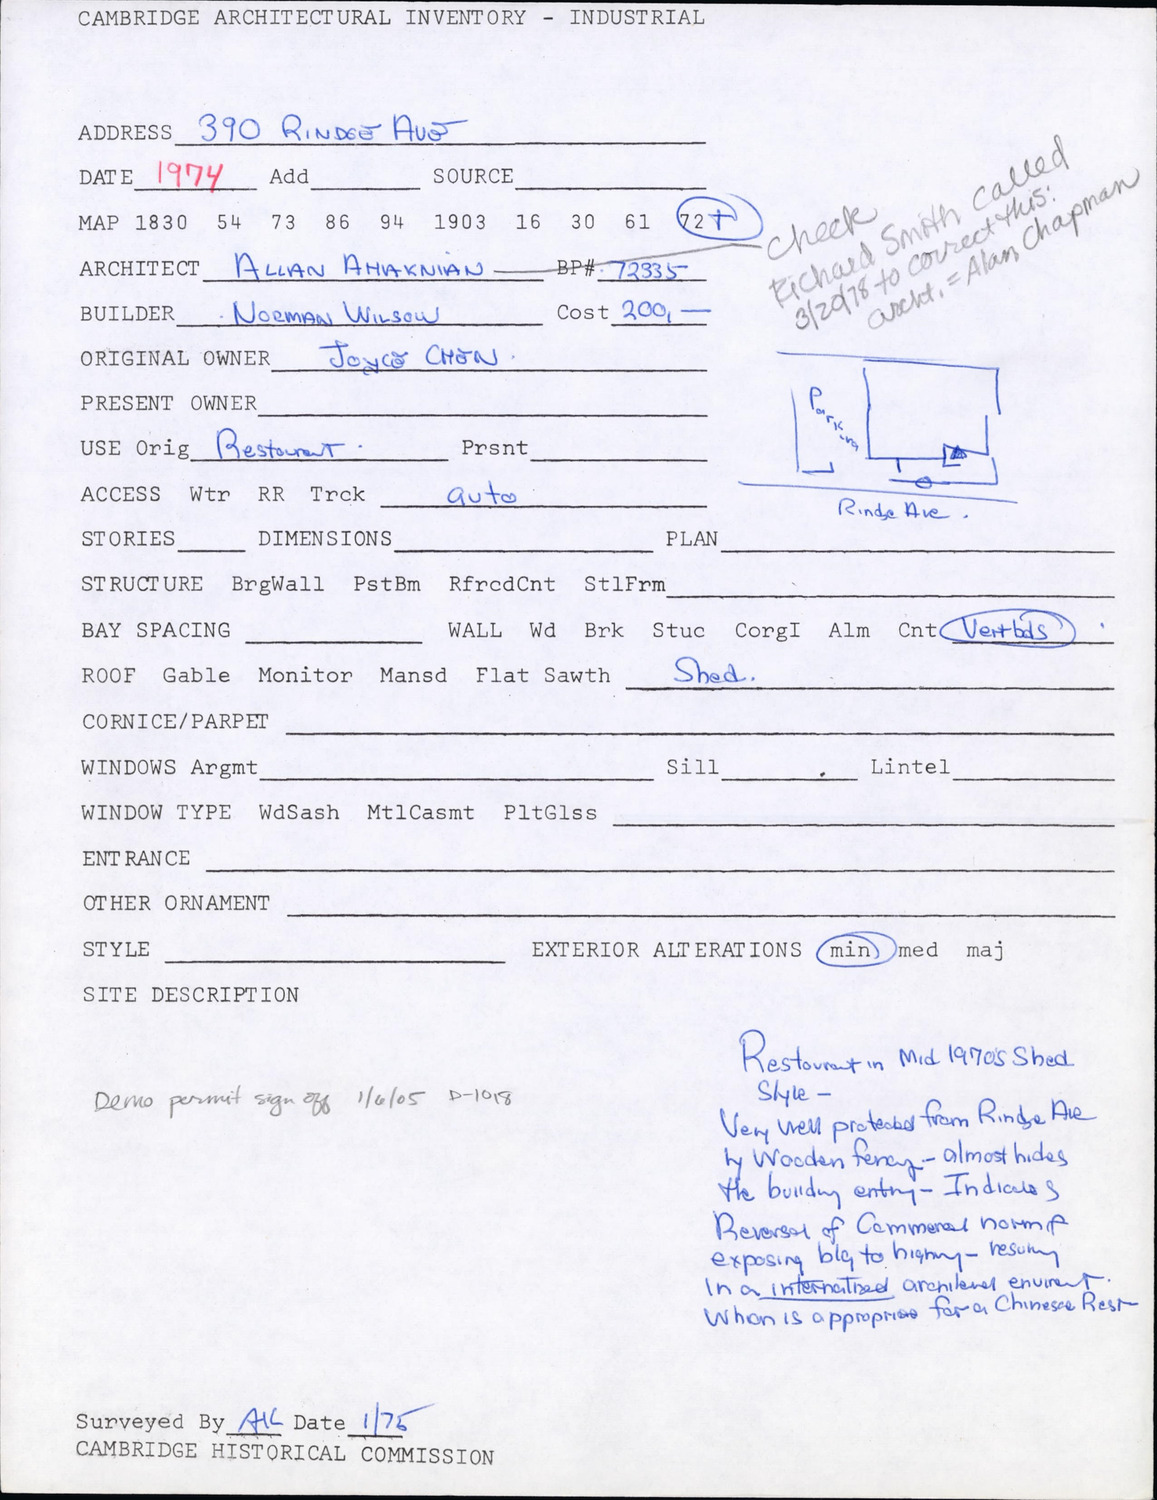 CAMBRIDGE ARCHITECTURAL INVENTORY - INDUSTRIAL
ADDRESS 390 RINDGE AVE
DATE 1974 Add SOURCE
MAP 1830 54 73 86 94 1903 16 30 61 72+
ARCHITECT ALLAN AHAKNIAN BP# 72335
check
Richard Smith called
3/20/78 to correct this:
archt. = Alan Chapman
BUILDER NORMAN WILSON Cost 200,—
ORIGINAL OWNER JOYCE CHEN
PRESENT OWNER
Parking
USE Orig Restaurant Prsnt
ACCESS Wtr RR Trck auto
Rindge Ave.
STORIES DIMENSIONS PLAN
STRUCTURE BrgWall PstBm RfrcdCnt StlFrm
BAY SPACING WALL Wd Brk Stuc CorgI Alm Cnt Vertbds
ROOF Gable Monitor Mansd Flat Sawth Shed.
CORNICE/PARPET
WINDOWS Argmt Sill Lintel
WINDOW TYPE WdSash MtlCasmt PltGlss
ENTRANCE
OTHER ORNAMENT
STYLE EXTERIOR ALTERATIONS min med maj
SITE DESCRIPTION
Restaurant in Mid 1970's Shed
Style -
Demo permit sign off 1/6/05 D-1018
Very well protected from Rindge Ave
by Wooden fencing - almost hides
the building entry - Indicates
Reversal of Commercial norm of
exposing bldg to highway - resulting
In a internalized architectural
is appropriate for a Chinese Rest
Surveyed By Date 1/75
CAMBRIDGE HISTORICAL COMMISSION